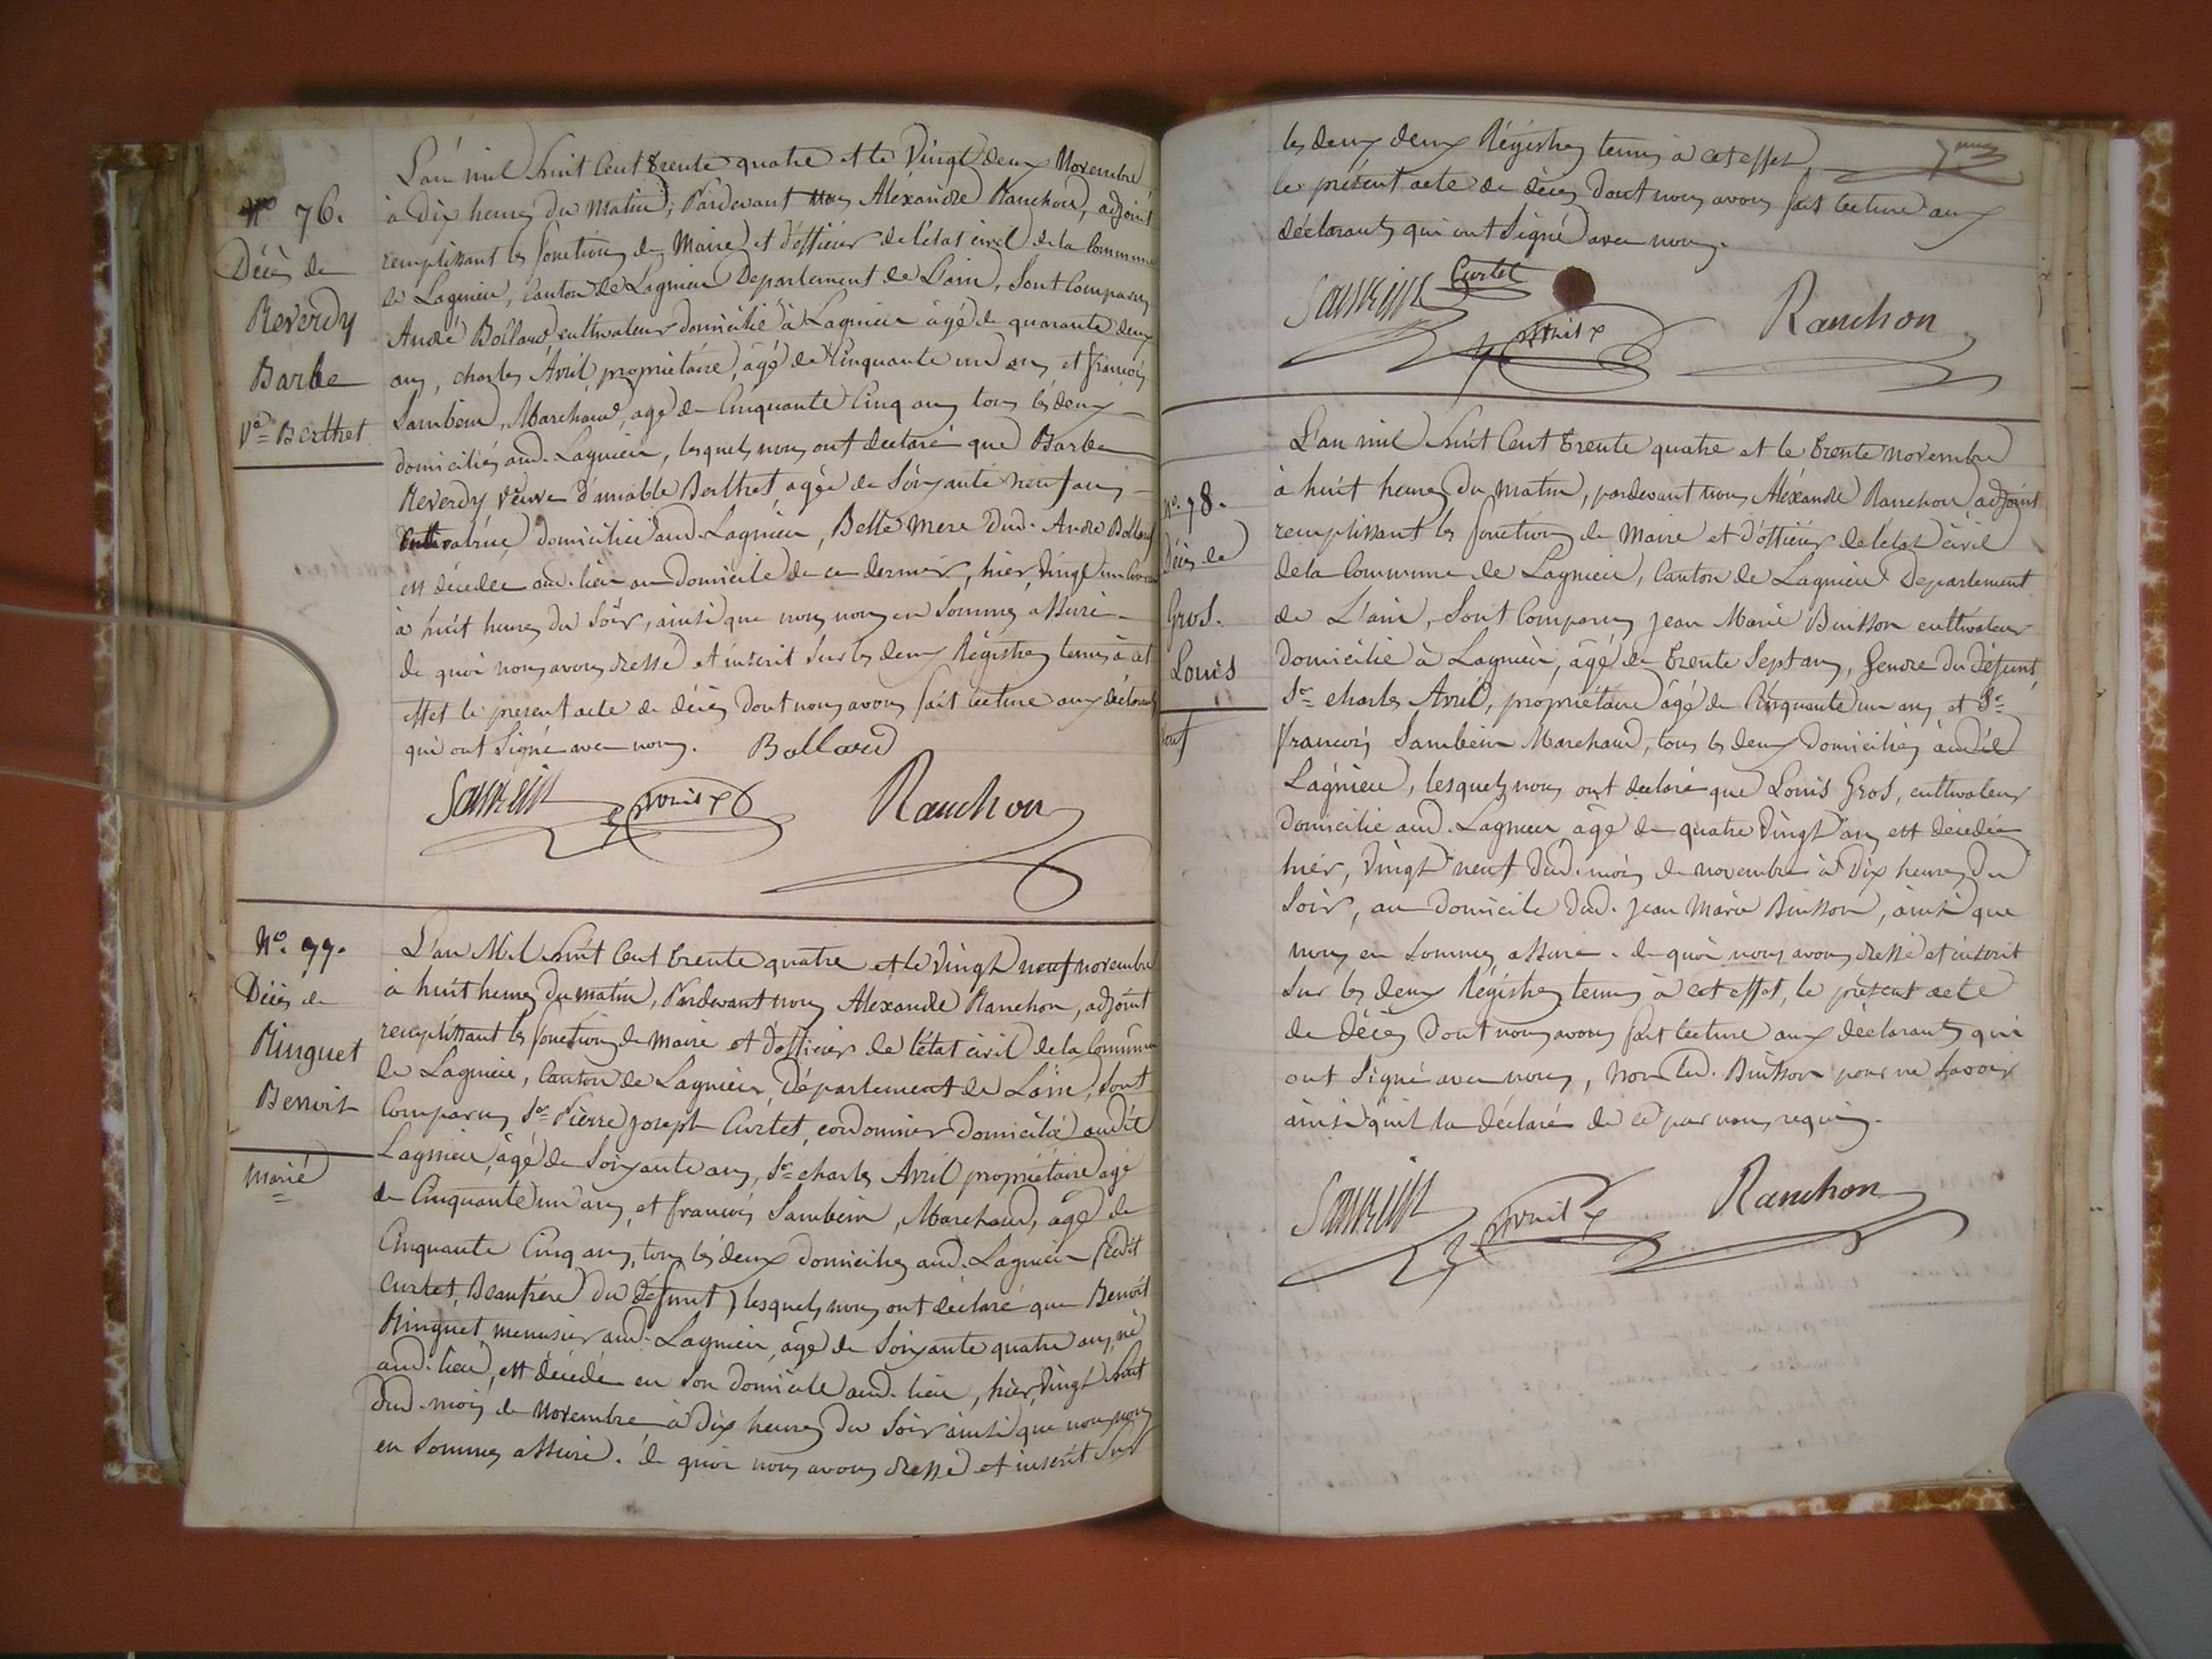 N° 76.
Décès de
Reverdy
Barbe
Ve Berthet
L'an mil huit Cent trente quatre et le Vingt deux Novembre
à Dix heures du Matin; Pardevant nous Aléxandre Ranchon, adjoint
remplissant les fonctions de Maire et d'officier de l'état civil de la Commune
de Lagnieu, Canton de Lagnieu Departement de L'ain, Sont Comparus
André Bollard cultivateur domicilié à Lagnieu âgé de quarante deux
ans, charles Avril propriétaire, âgé de Cinquante un ans, et françois
Sambein, Marchand, agé de Cinquante Cinq ans tous les deux
domiciliés aud. Lagnieu, lesquels nous ont declaré que Barbe
Reverdy veuve d'amable Berthet, agée de Soixante neuf ans
Cultivatrice domiciliée aud. Lagnieu, Belle Mere dud. André Bollard
est décedée aud. lieu au Domicile de ce dernier, hier Vingt un Courant
à huit heures du Soir, ainsi que nous nous en Sommes assuré
de quoi nous avons dressé et inscrit Sur les deux Régistres tenus à cet
effet le present acte de décès dont nous avons fait lecture aux déclarants
qui ont Signé avec nous. Bollard
Sambein Avril Ranchon
N° 77.
Décès de
Ringuet
Benoit
marié
L'an Mil huit Cent trente quatre et le Vingt neuf novembre
à huit heures du matin, Pardevant nous Alexandre Ranchon, adjoint
remplissant les fonctions de Maire et d'officier de l'état civil de la Commune
de Lagnieu, Canton de Lagnieu, Département de Lain, Sont
Comparus Sr Pierre joseph Curtet, cordonnier domicilié audit
Lagnieu, âgé de Soixante ans, Sr charles Avril propriétaire agé
de Cinquante un ans, et françois Sambein, Marchand, agé de
Cinquante Cinq ans, tous les deux domiciliés aud. Lagnieu (Ledit
Curtet, Beaufrère du défunt) lesquels nous ont déclaré que Benoit
Ringuet menusier aud. Lagnieu, âgé de Soixante quatre ans, né
aud. lieu, est décédé en Son domicile aud. lieu, hier, Vingt huit
dud. mois de Novembre à Dix heures du Soir ainsi que nous nous
en Sommes assuré. de quoi nous avons dressé et inscrit Sur
les deux deux Régistres tenus à cet effet
le présent acte de décès dont nous avons fait lecture aux
déclarants qui ont Signé avec nous.
Sambein Curtet Avril Ranchon
N° 78.
Décès de
Gros.
Louis
L'an mil huit Cent trente quatre et le trente novembre
à huit heures du matin, pardevant nous Aléxandre Ranchon adjoint
remplissant les fonctions de Maire et d'officier de l'état civil
de la Commune de Lagnieu, Canton de Lagnieu Departement
de L'ain, Sont Comparus jean Marie Buisson cultivateur
domicilié à Lagnieu, âgé de trente Sept ans, Gendre du défunt,
Sr charles Avril, propriétaire âgé de Cinquante un ans et Sr
françois Sambein Marchand, tous les deux domiciliés audit
Lagnieu, lesquels nous ont declaré que Louis Gros, cultivateur
domicilié aud. Lagnieu agé de quatre Vingt ans est décedé
hier, Vingt neuf dud. mois de novembre à Dix heures du
Soir, au domicile dud. jean Marie Buisson, ainsi que
nous en Sommes assuré. de quoi nous avons dressé et inscrit
Sur les deux Régistres tenus à cet effet, le présent acte
de décès dont nous avons fait lecture aux déclarants qui
ont Signé avec nous, non led. Buisson pour ne Savoir
ainsi qu'il la déclaré de ce par nous requis.
Sambein Avril Ranchon